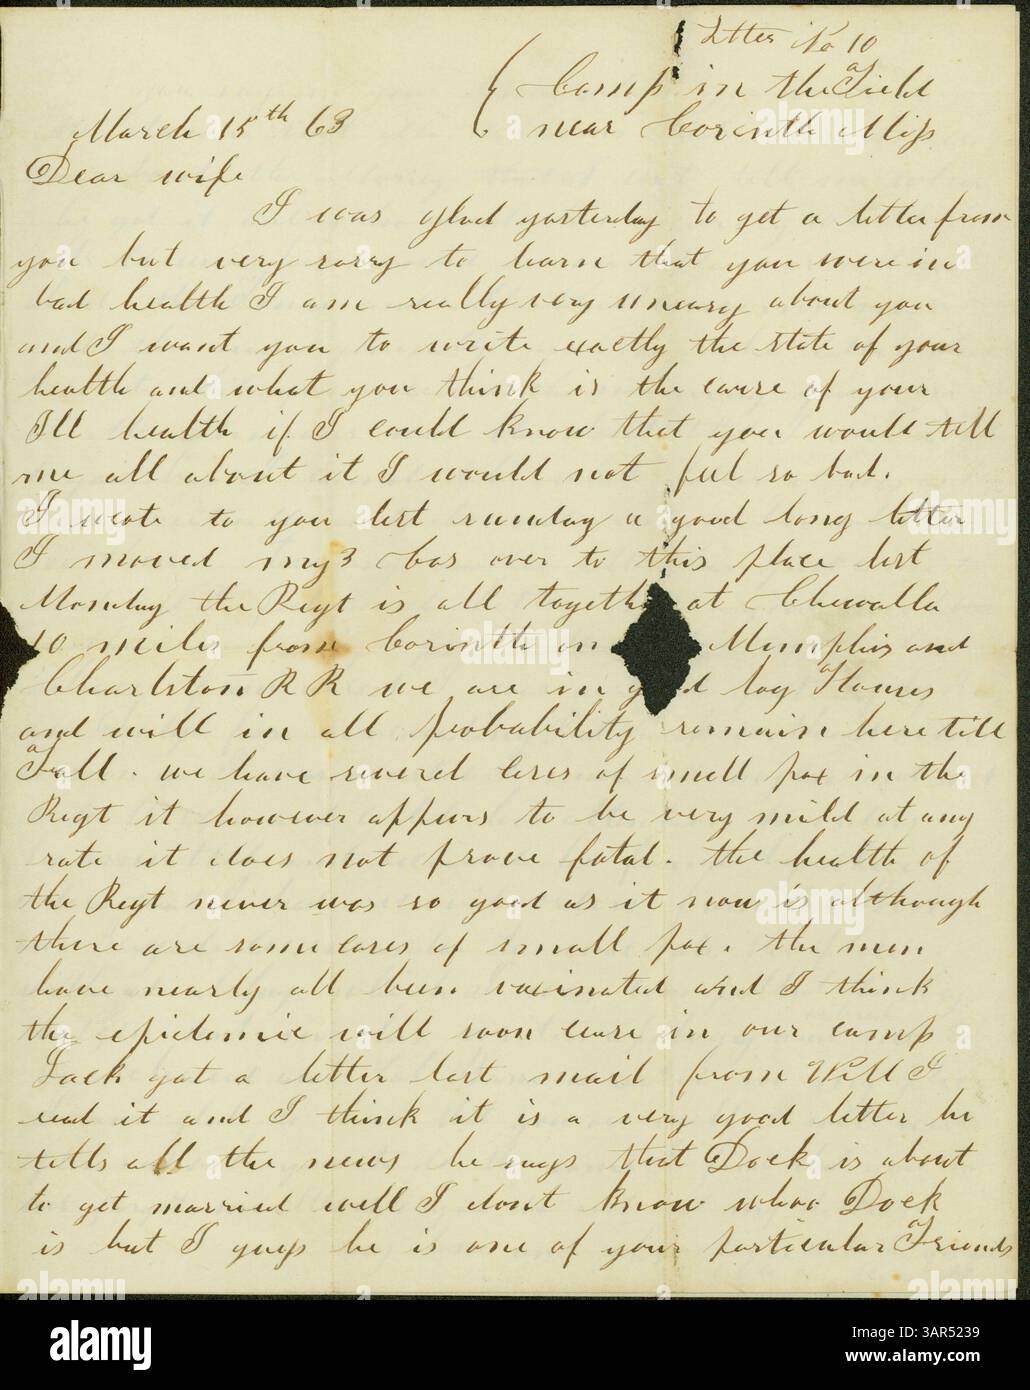 Letter No 10
Camp in the Field
March 15th 63 near Corinth Miss
Dear wife
I was glad yasterday to get a letter from
you but very sorry to learn that you were in
bad health I am really very uneasy about you
and I want you to write exactly the state of your
health and what you think is the cause of your
Ill health if I could know that you would tell
me all about it I would not feel so bad.
I wrote to you last sunday a good long letter
I moved my 3 Cos over to this place last
Monday the Regt is all togeth at Chewalla
10 miles from Corinth on Memphis and
Charlston R R we are in g d log Houses
and will in all probability remain here till
Fall. we have several cases of small pox in the
Regt it however appears to be very mild at any
rate it does not prove fatal. the health of
the Regt never was so good as it now is although
there are some cases of small pox. the men
have nearly all been vaxinated and I think
the epidemic will soon cease in our camp
Jack got a letter last mail from Will I
read it and I think it is a very good letter he
tells all the news he says that Dock is about
to get married well I dont know whoo Dock
is but I guess he is one of your particular Friends
alamy
Image ID: 3AR5239
www.alamy.com